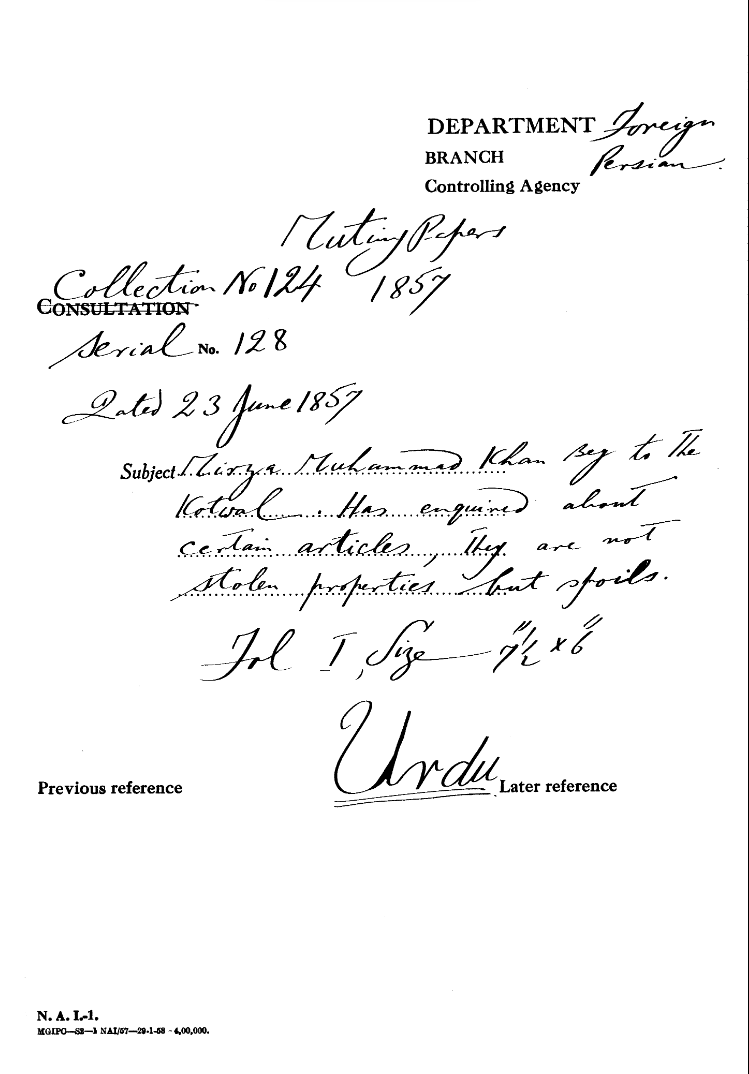 DEPARTMENT Foreign
BRANCH Persian.
Controlling Agency
Mutiny Papers
Collection No 124 1857
CONSULTATION
Serial No. 128
Dated 23 June 1857
Subject Mirza Muhammad Khan Beg to The
Kotwal. Has enquired about
certain articles, They are not
stolen properties but spoils.
Fol I, Size 7½" x 6"
Urdu
Previous reference
Later reference
N. A. I.-1.
MGIPC—S2—1 NAI/57—29-1-58 - 4,00,000.